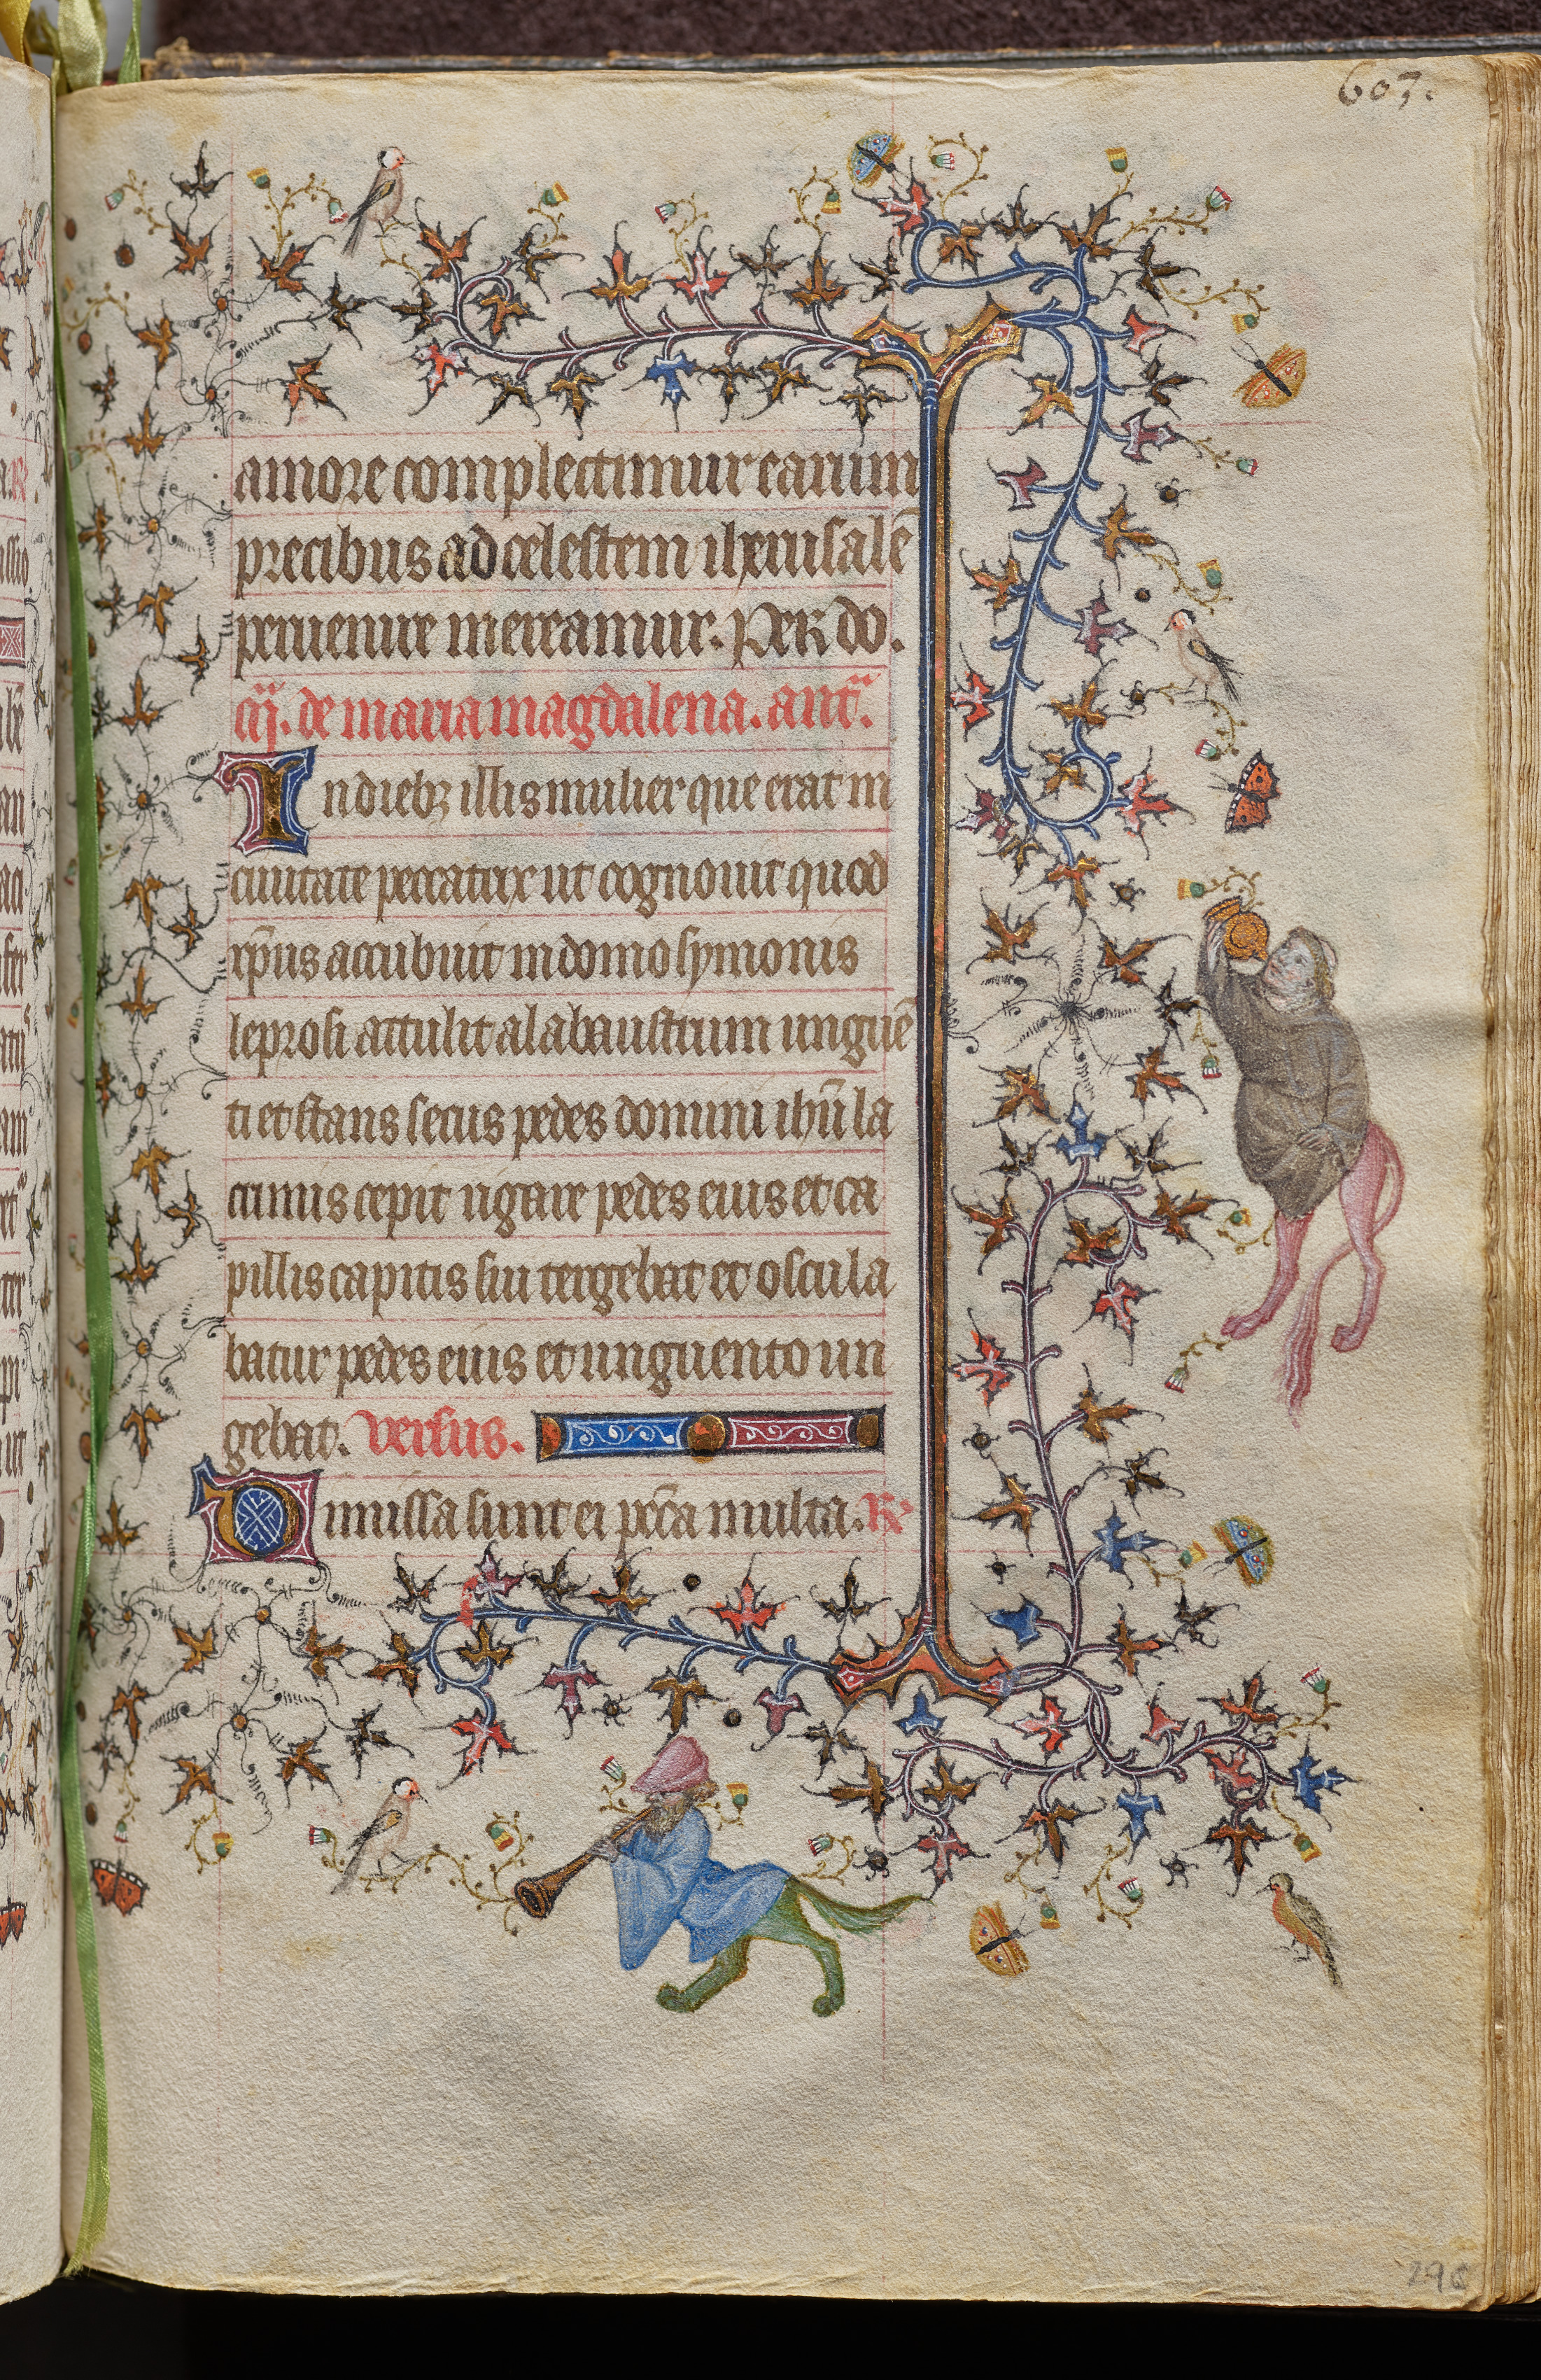 607.
amore complectimur earum
precibus ad celestem iherusalē
peruenire mereamur. Per do.
de maria magdalena. ant̄.
In diebꝫ illis mulier que erat in
ciuitate peccatrix ut cognouit quod
xp̄us accubuit in domo symonis
leprosi attulit alabaustrum unguē
ti et stans secus pedes domini ihū la
crimis cepit rigare pedes eius et ca
pillis capitis sui tergebat et oscula
batur pedes eius et unguento un
gebat. versus.
Dimissa sunt ei pc̄ca multa. R̸
296